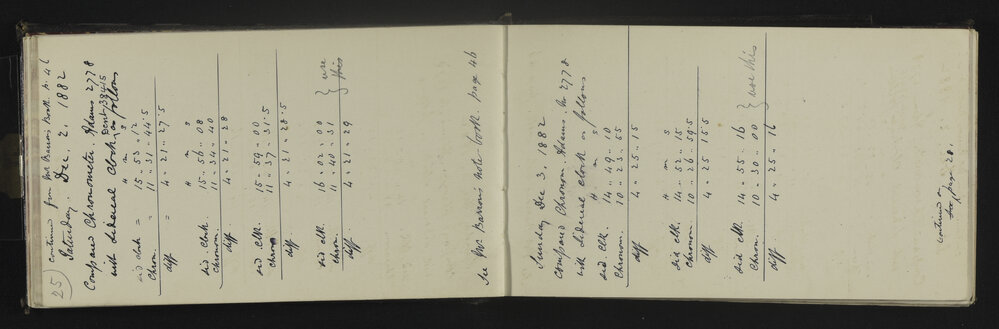 25) continued from Mr Barron's Book. p. 46
Saturday. Dec. 2. 1882
Compared Chronometer. Adams 2778
Dent
with Sidereal Clock, as follows
h m s
sid clock = 15 .. 53 .. 12
Chron. = 11 .. 31 .. 44.5
diff = 4 .. 21 .. 27.5
h m s
sid. clock. 15 .. 56 .. 08
Chronom. 11 .. 34 .. 40
diff 4 .. 21 .. 28
sid clk. 15 .. 59 .. 00
chronom 11 .. 37 .. 31.5
diff. 4 .. 21 .. 28.5
sid. clk 16 .. 02 .. 00 } use
chron. 11 .. 40 .. 31 this
diff. 4 .. 21 .. 29
See Mr. Barron's Note-book. page 46
Sunday Dec 3. 1882
Compared Chronom. Adams. No 2778
with sidereal clock as follows
h m s
sid. clk. 14 .. 49 .. 10
Chronom. 10 .. 23 .. 55
diff 4 .. 25 .. 15
h m s
sid clk. 14 .. 52 .. 15
Chronom. 10 .. 26 .. 59.5
diff 4 .. 25 15.5
sid clk. 14 .. 55 .. 16 } use this
Chron. 10 .. 30 .. 00
diff 4 .. 25 .. 16
continued
see page 28.